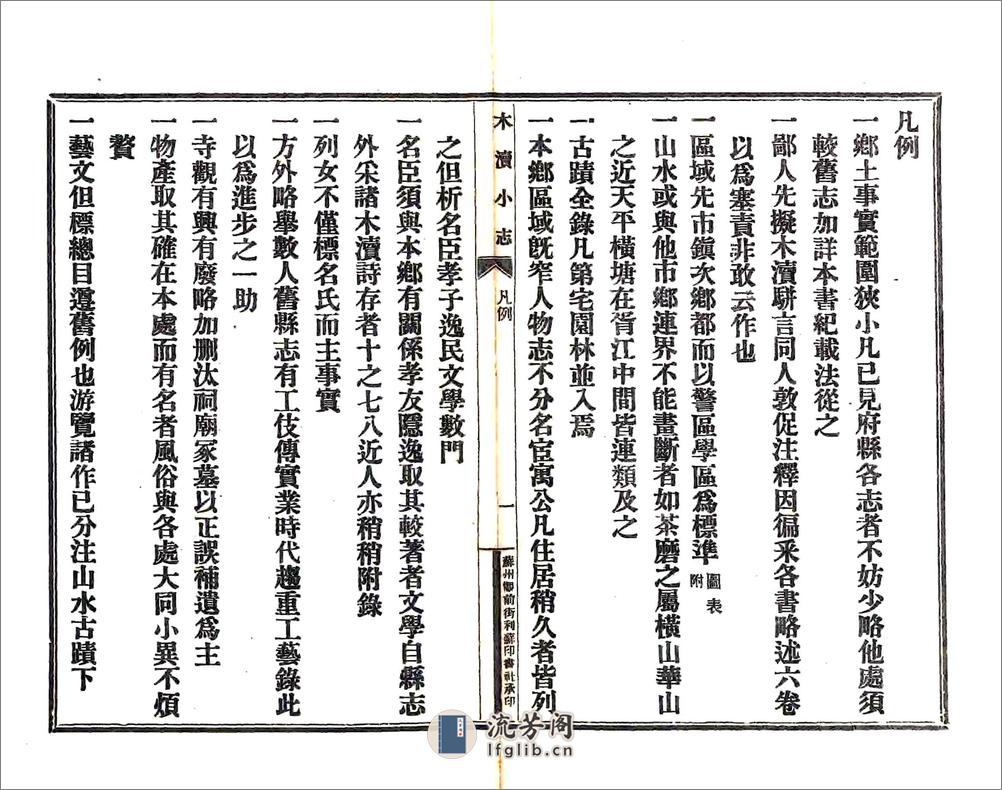 凡例
一鄉土事實範圍狹小凡已見府縣各志者不妨少略他處須
較舊志加詳本書紀載法從之
一鄙人先擬木瀆駢言同人敦促注釋因徧釆各書略述六卷
以爲塞責非敢云作也
一區域先市鎭次鄉都而以警區學區爲標準圖表附
一山水或與他市鄉連界不能畫斷者如茶磨之屬橫山華山
之近天平橫塘在胥江中間皆連類及之
一古蹟全錄凡第宅園林並入焉
一本鄉區域旣窄人物志不分名宦寓公凡住居稍久者皆列
木瀆小志
凡例
一
蘇州鄉前街利蘇印書社承印
之但析名臣孝子逸民文學數門
一名臣須與本鄉有關係孝友隱逸取其較著者文學自縣志
外采諸木瀆詩存者十之七八近人亦稍稍附錄
一列女不僅標名氏而主事實
一方外略舉數人舊縣志有工伎傳實業時代趨重工藝錄此
以爲進步之一助
一寺觀有興有廢略加删汰祠廟冢墓以正誤補遺爲主
一物產取其確在本處而有名者風俗與各處大同小異不煩
贅
一藝文但標總目遵舊例也游覽諸作已分注山水古蹟下
流芳阁
lfglib.cn